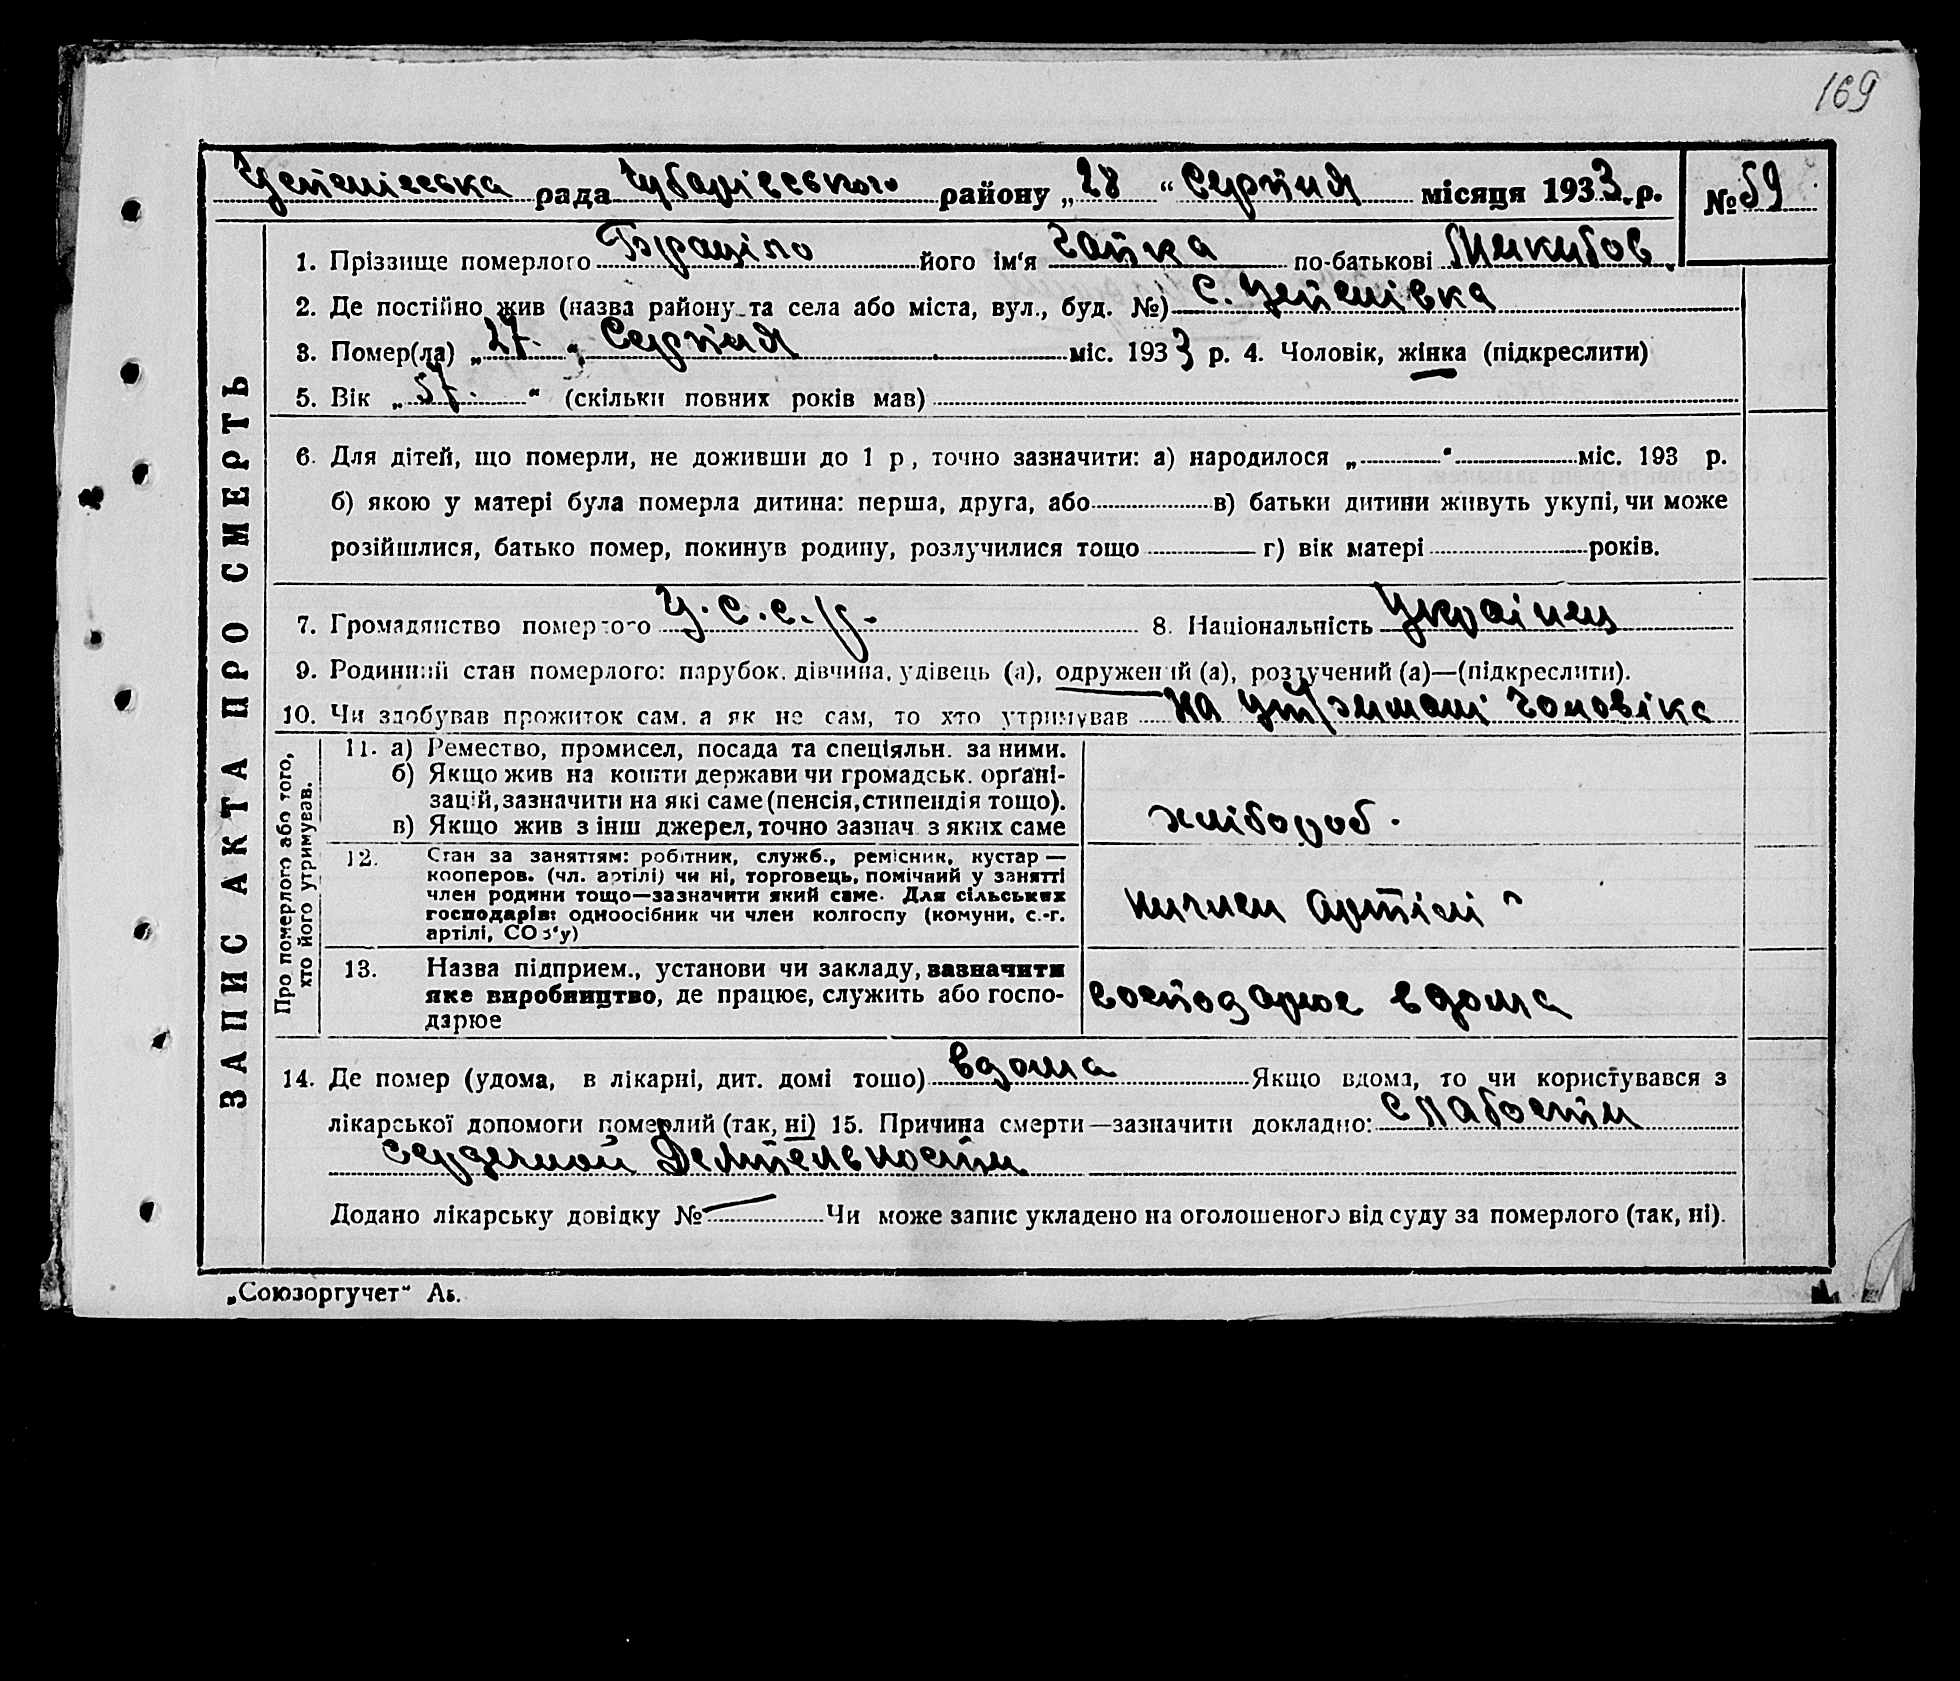 169
рада Чубарівського району „28“ Серпня місяця 1933 р. № 59
ЗАПИС АКТА ПРО СМЕРТЬ
1. Прізвище померлого його ім'я Гапка по-батькові
2. Де постійно жив (назва району та села або міста, вул., буд. №) с.
3. Помер(ла) „27.“ Серпня міс. 1933 р. 4. Чоловік, жінка (підкреслити)
5. Вік „57.“ (скільки повних років мав)
6. Для дітей, що померли, не доживши до 1 р, точно зазначити: а) народилося „ “ міс. 193 р.
б) якою у матері була померла дитина: перша, друга, або в) батьки дитини живуть укупі, чи може
розійшлися, батько помер, покинув родину, розлучилися тощо г) вік матері років.
7. Громадянство померлого У.С.С.Р. 8. Національність Українец
9. Родинний стан померлого: парубок, дівчина, удівець (а), одружений (а), розлучений (а)—(підкреслити).
10. Чи здобував прожиток сам, а як не сам, то хто утримував на утрзимані чоловіка
Про померлого або того, хто його утримував.
11. а) Ремество, промисел, посада та спеціяльн. за ними.
б) Якщо жив на кошти держави чи громадськ. орґані-
зацій, зазначити на які саме (пенсія, стипендія тощо).
в) Якщо жив з інш джерел, точно зазнач з яких саме
хлібороб.
12. Стан за заняттям: робітник, служб., ремісник, кустар —
кооперов. (чл. артілі) чи ні, торговець, помічний у занятті
член родини тощо—зазначити який саме. Для сільських
господарів: одноосібник чи член колгоспу (комуни, с.-г.
артілі, СОЗ'у)
артілі
13. Назва підприєм., установи чи закладу, зазначити
яке виробництво, де працює, служить або госпо-
дарює
господарює вдома
14. Де помер (удома, в лікарні, дит. домі тощо) вдома Якщо вдома, то чи користувався з
лікарської допомоги померлий (так, ні) 15. Причина смерти—зазначити докладно: слабости
сердечной Деятельности
Додано лікарську довідку № Чи може запис укладено на оголошеного від суду за померлого (так, ні).
„Союзоргучет“